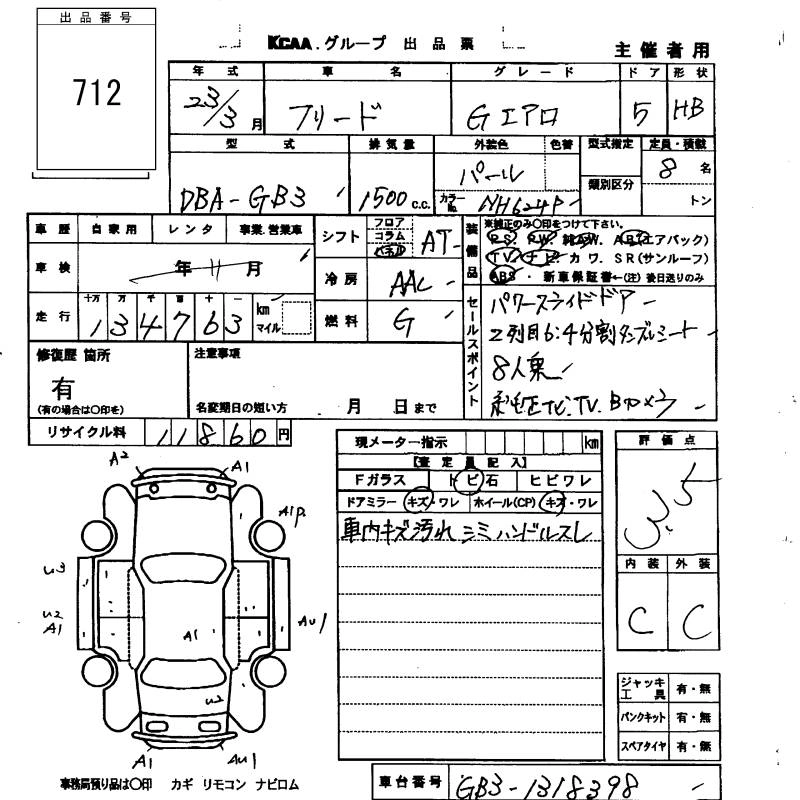 出品番号
712
KCAA.グループ 出品票
主催者用
年式 車名 グレード ドア 形状
23/3月 フリード Gエアロ 5 HB
型式 排気量 外装色 色替 型式指定 定員・積載
DBA-GB3 1500c.c. パール 類別区分 8名
カラーNo. NH624P トン
車歴 自家用 レンタ 事業.営業車
シフト フロア コラム パネル AT
車検 年 11月
冷房 AAC
走行 十万 万 千 百 十 一
134763 km マイル
燃料 G
装備品 ※純正のみ〇印をつけて下さい。
P.S. P.W. 純A.W. A.B.(エアバック)
T V. ナビ. カワ. S R(サンルーフ)
ABS ・ 新車保証書←(注)後日送りのみ
セールスポイント
パワースライドドア
2列目6:4分割タンブルシート
8人乗
純正ナビ.TV.Bカメラ
修復歴 箇所
有
(有の場合は〇印を)
注意事項
名変期日の短い方 月 日まで
リサイクル料 11860円
現メーター指示 km
【査定員記入】
Fガラス トビ石 ヒビワレ
ドアミラー キズ・ワレ ホイール(CP) キズ・ワレ
車内キズ汚れ シミ ハンドルスレ
評価点
3.5
内装 外装
C C
A2 A1
A1P.
U3
U2
A1
A1
AU1
U2
A1 AU1
ジャッキ工具 有・無
パンクキット 有・無
スペアタイヤ 有・無
事務局預り品は〇印 カギ リモコン ナビロム
車台番号 GB3-1318398